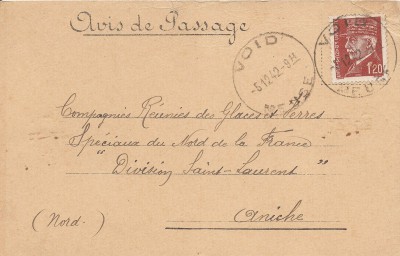 Avis de Passage
VOID
-5 12 42 -9 H
MEUSE
VOID
MEUSE
1F20
Compagnies Réunies des Glaces et Verres
Spéciaux du Nord de la France
"Division Saint-Laurent"
Aniche
(Nord.)